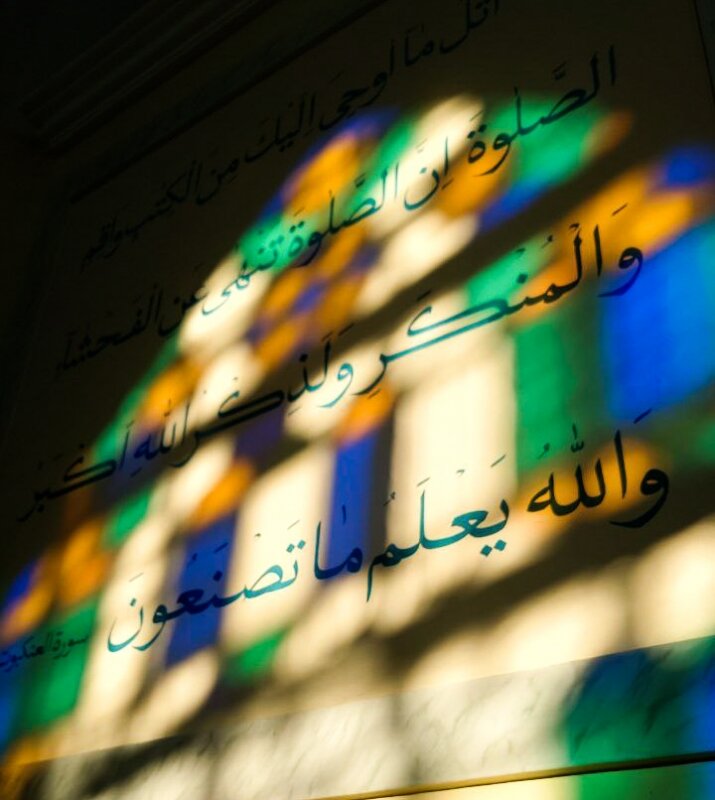 اتل ما اوحی الیك من الكتب واقم
الصَّلوة اِنَّ الصَّلوةَ تَنْهى عَنِ الفَحشاء
وَالْمُنكَرِ وَلَذِكرُ اللهِ اَكْبَرُ
وَاللهُ يَعْلَمُ ما تَصْنَعُونَ
سورة العنكبوت